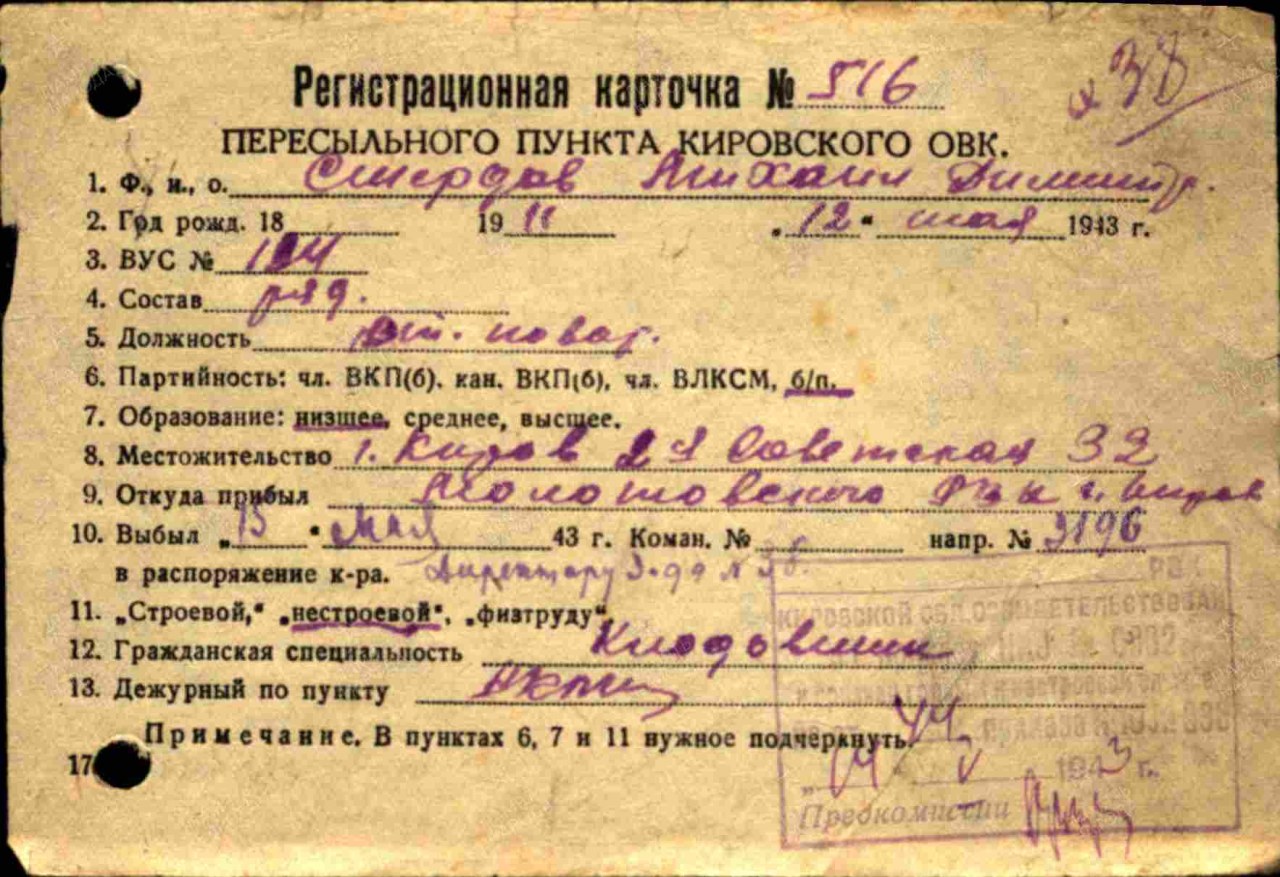 Регистрационная карточка № 516
38
ПЕРЕСЫЛЬНОГО ПУНКТА КИРОВСКОГО ОВК.
1. Ф., и., о. Михаил Димитр.
2. Год рожд. 18 19 11 „12“ мая 1943 г.
3. ВУС № 124
4. Состав ряд.
5. Должность повар.
6. Партийность: чл. ВКП(б). кан. ВКП(б), чл. ВЛКСМ, б/п.
7. Образование: низшее, среднее, высшее.
8. Местожительство г. Киров 2я Советская 32
9. Откуда прибыл Молотовского РВк г. Киров
10. Выбыл „13“ мая 43 г. Коман. № напр. № 3196
в распоряжение к-ра. Директору
11. „Строевой,“ „нестроевой“, „физтруду“.
12. Гражданская специальность Кладовщик
13. Дежурный по пункту
Примечание. В пунктах 6, 7 и 11 нужное подчеркнуть.
17
РВК
КИРОВСКОЙ ОБЛ. ОСВИДЕТЕЛЬСТВОВАН
приказа НКО № 336
„14“ V 1943 г.
Предкомиссии